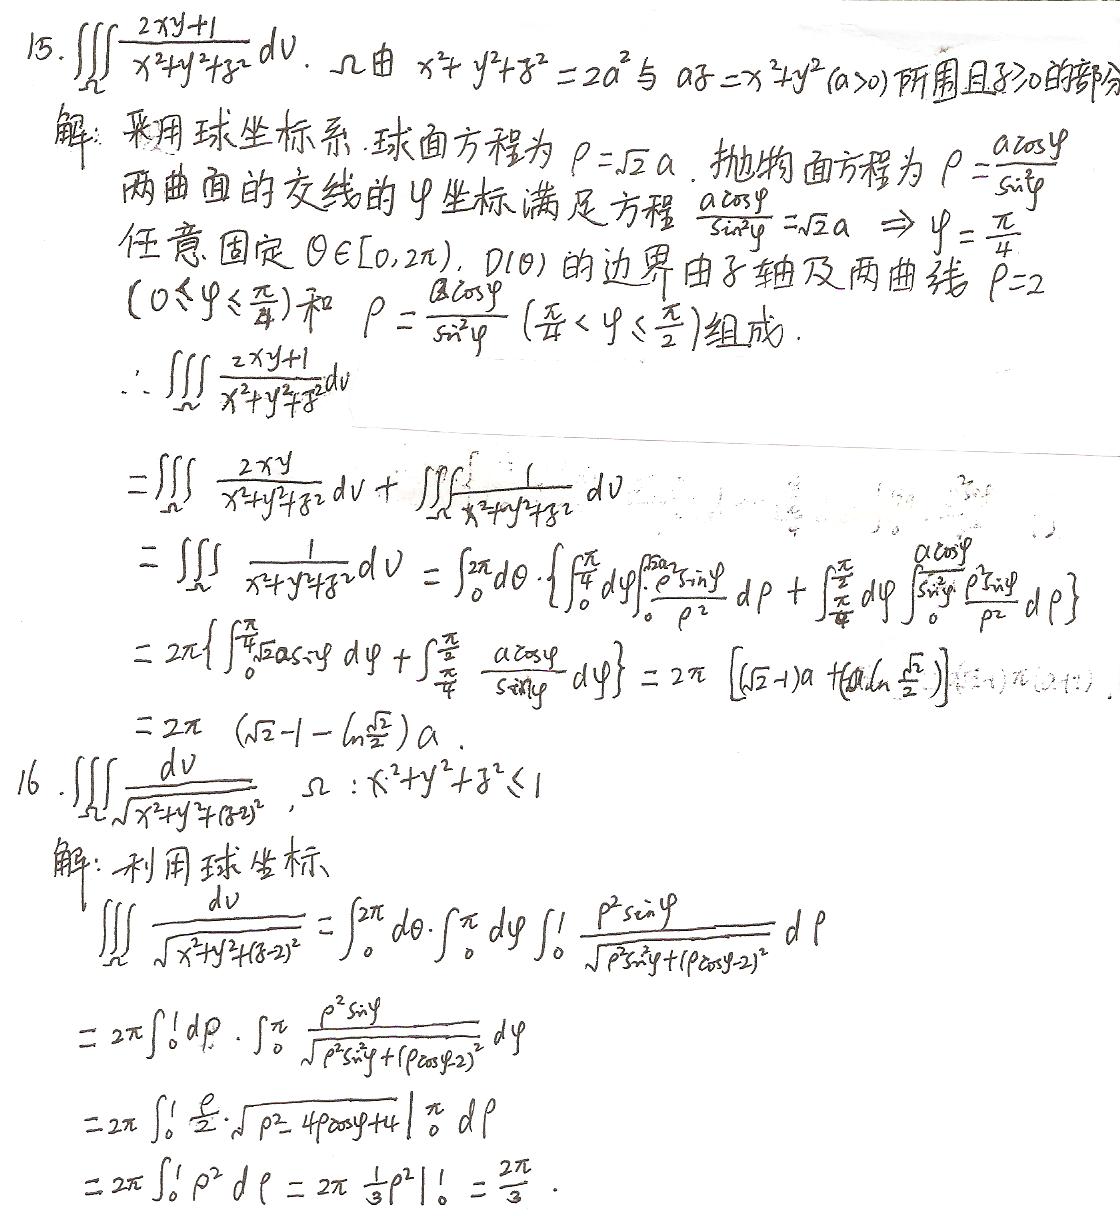 15. ∭_Ω (2xy+1)/(x²+y²+z²) dv. Ω由 x²+y²+z²=2a² 与 az=x²+y² (a>0) 所围且z≥0的部分
解: 采用球坐标系.球面方程为 ρ=√2 a. 抛物面方程为 ρ=acosφ/sin²φ
两曲面的交线的φ坐标满足方程 acosφ/sin²φ=√2a ⇒ φ=π/4
任意固定 θ∈[0,2π), D(θ) 的边界由z轴及两曲线 ρ=2
(0≤φ≤π/4)和 ρ=acosφ/sin²φ (π/4<φ≤π/2)组成.
∴ ∭_Ω (2xy+1)/(x²+y²+z²) dv
=∭_Ω 2xy/(x²+y²+z²) dv + ∭_Ω 1/(x²+y²+z²) dv
= ∭_Ω 1/(x²+y²+z²) dv = ∫₀^{2π}dθ·{∫₀^{π/4}dφ∫₀^{√2a} ρ²sinφ/ρ² dρ + ∫_{π/4}^{π/2} dφ ∫₀^{acosφ/sin²φ} ρ²sinφ/ρ² dρ}
= 2π{∫₀^{π/4}√2asinφ dφ + ∫_{π/4}^{π/2} acosφ/sinφ dφ} = 2π [(√2-1)a + (-a ln √2/2)]
= 2π (√2-1-ln √2/2) a.
16. ∭_Ω dv/√(x²+y²+(z-2)²), Ω: x²+y²+z²≤1
解: 利用球坐标
∭_Ω dv/√(x²+y²+(z-2)²) = ∫₀^{2π} dθ·∫₀^π dφ ∫₀¹ ρ²sinφ/√(ρ²sin²φ+(ρcosφ-2)²) dρ
= 2π∫₀¹dρ·∫₀^π ρ²sinφ/√(ρ²sin²φ+(ρcosφ-2)²) dφ
=2π ∫₀¹ ρ/2·√(ρ²-4ρcosφ+4) |₀^π dρ
= 2π ∫₀¹ ρ² dρ = 2π 1/3 ρ²|₀¹ = 2π/3.